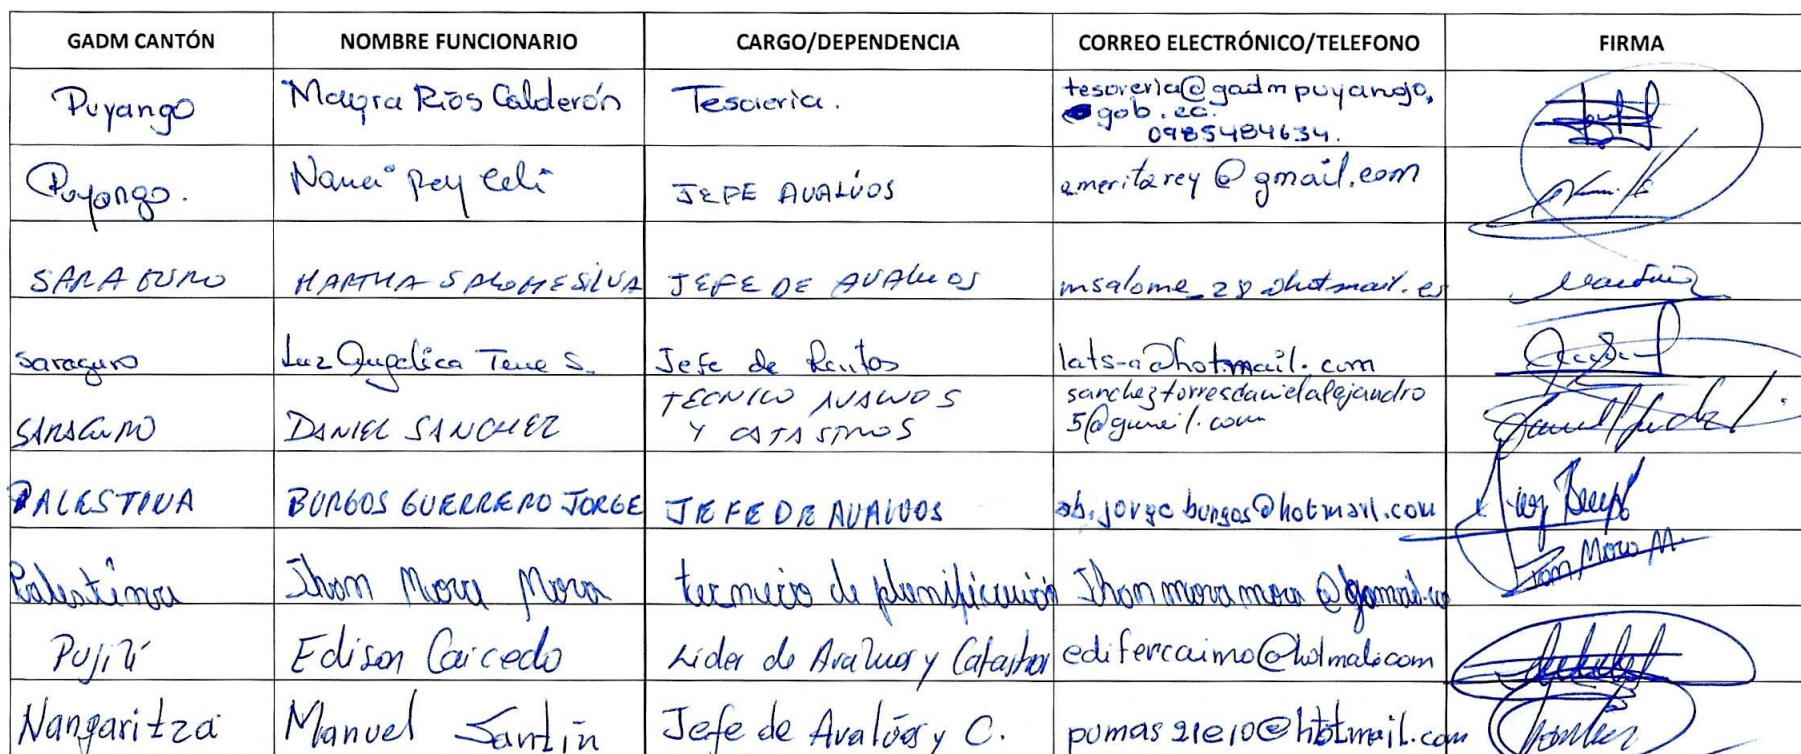 GADM CANTÓN NOMBRE FUNCIONARIO CARGO/DEPENDENCIA CORREO ELECTRÓNICO/TELEFONO FIRMA
Puyango Mayra Ríos Calderón Tesorería. tesoreria@gadmpuyango,
gob.ec.
0985484634.
Puyango. Rey Celi JEFE AVALÚOS ameritarey@gmail.com
SARAGURO MARTHA SALOME SILVA JEFE DE AVALUOS msalome_28@hotmail.es
Saraguro Luz Angelica Tene S. Jefe de Rentas lats-a@hotmail.com
SARAGURO DANIEL SANCHEZ TECNICO AVALUOS
Y CATASTROS
sancheztorresdanielalejandro
5@gmail.com
PALESTINA BURGOS GUERRERO JORGE JEFE DE AVALUOS ab.jorge burgos@hotmail.com
Palestina Jhon Mora Mora tecnico de planificación Jhon mora mora @gamail.co
Jhon Mora M.
Pujilí Edison Caicedo Lider de Avaluos y Catastros edifercaimo@hotmail.com
Nangaritza Manuel Santín Jefe de Avalúos y C. pumas21e10@hotmail.com